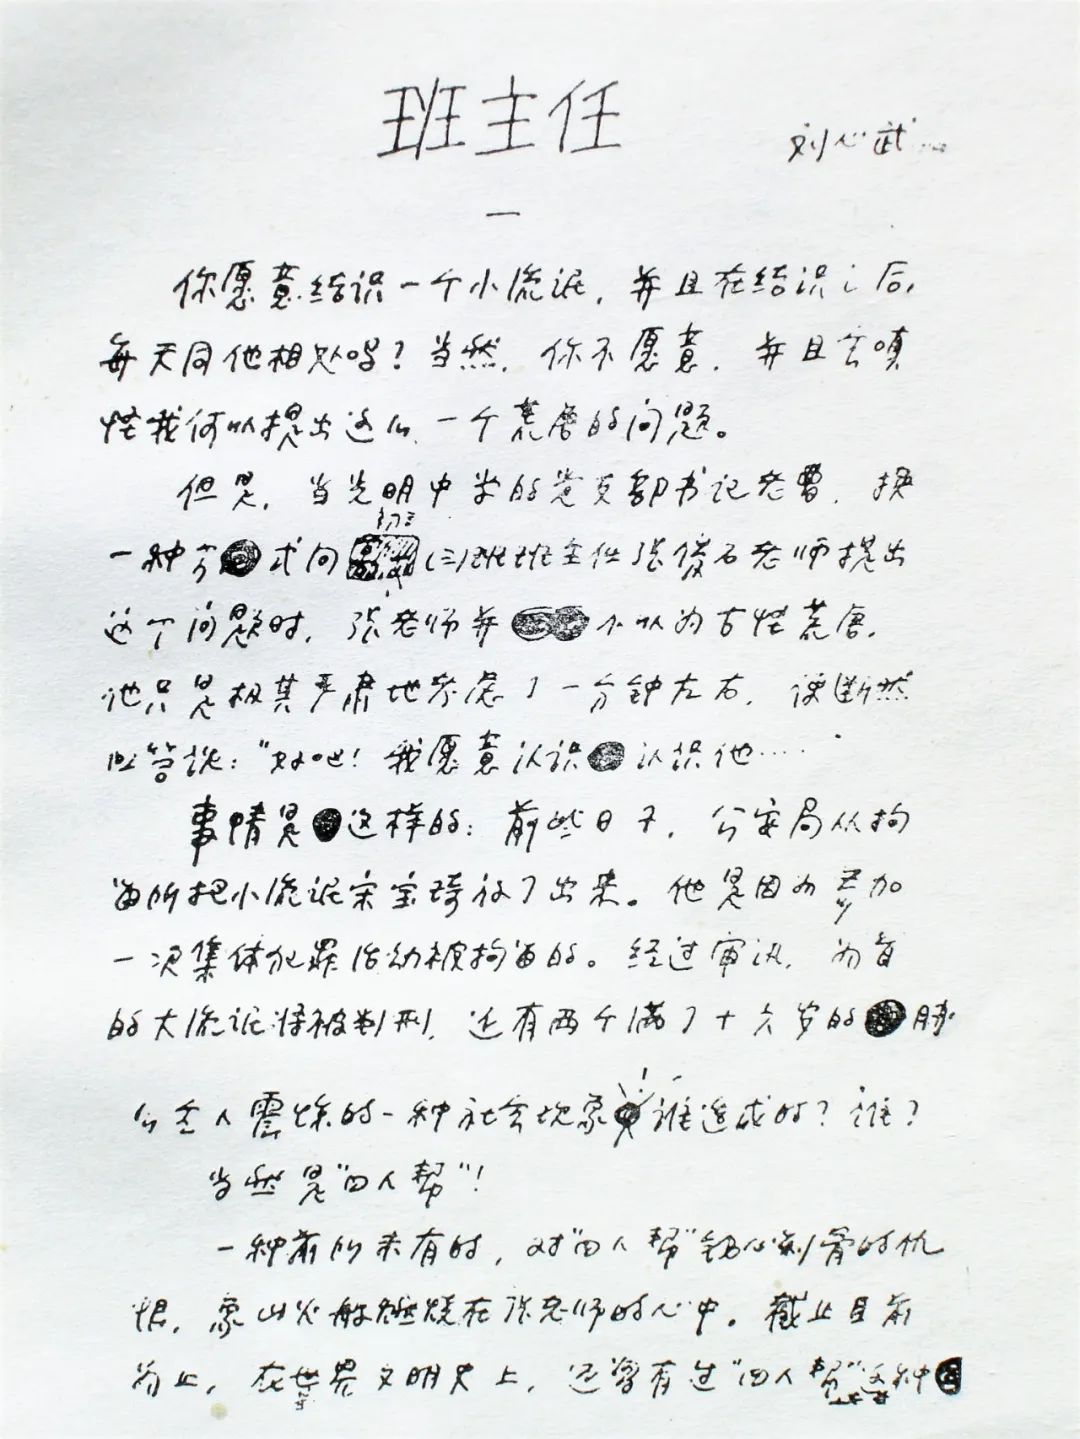 班主任
刘心武
一
你愿意结识一个小流氓，并且在结识之后，
每天同他相处吗？当然，你不愿意，并且会嗔
怪我何以提出这么一个荒唐的问题。
但是，当光明中学的党支部书记老曹，换
初三
一种方式向(三)班班主任张俊石老师提出
这个问题时，张老师并不以为古怪荒唐，
他只是极其严肃地考虑了一分钟左右，便断然
回答说：“好吧！我愿意认识认识他……
事情是这样的：前些日子，公安局从拘
留所把小流氓宋宝琦放了出来。他是因为参加
一次集体犯罪活动被拘留的。经过审讯，为首
的大流氓将被判刑，还有两个满了十六岁的胁
令人震惊的一种社会现象谁造成的？谁？
当然是“四人帮”！
一种前所未有的，对“四人帮”铭心刻骨的仇
恨，象山火般燃烧在张老师的心中。截止目前
为止，在世界文明史上，还曾有过“四人帮”这种